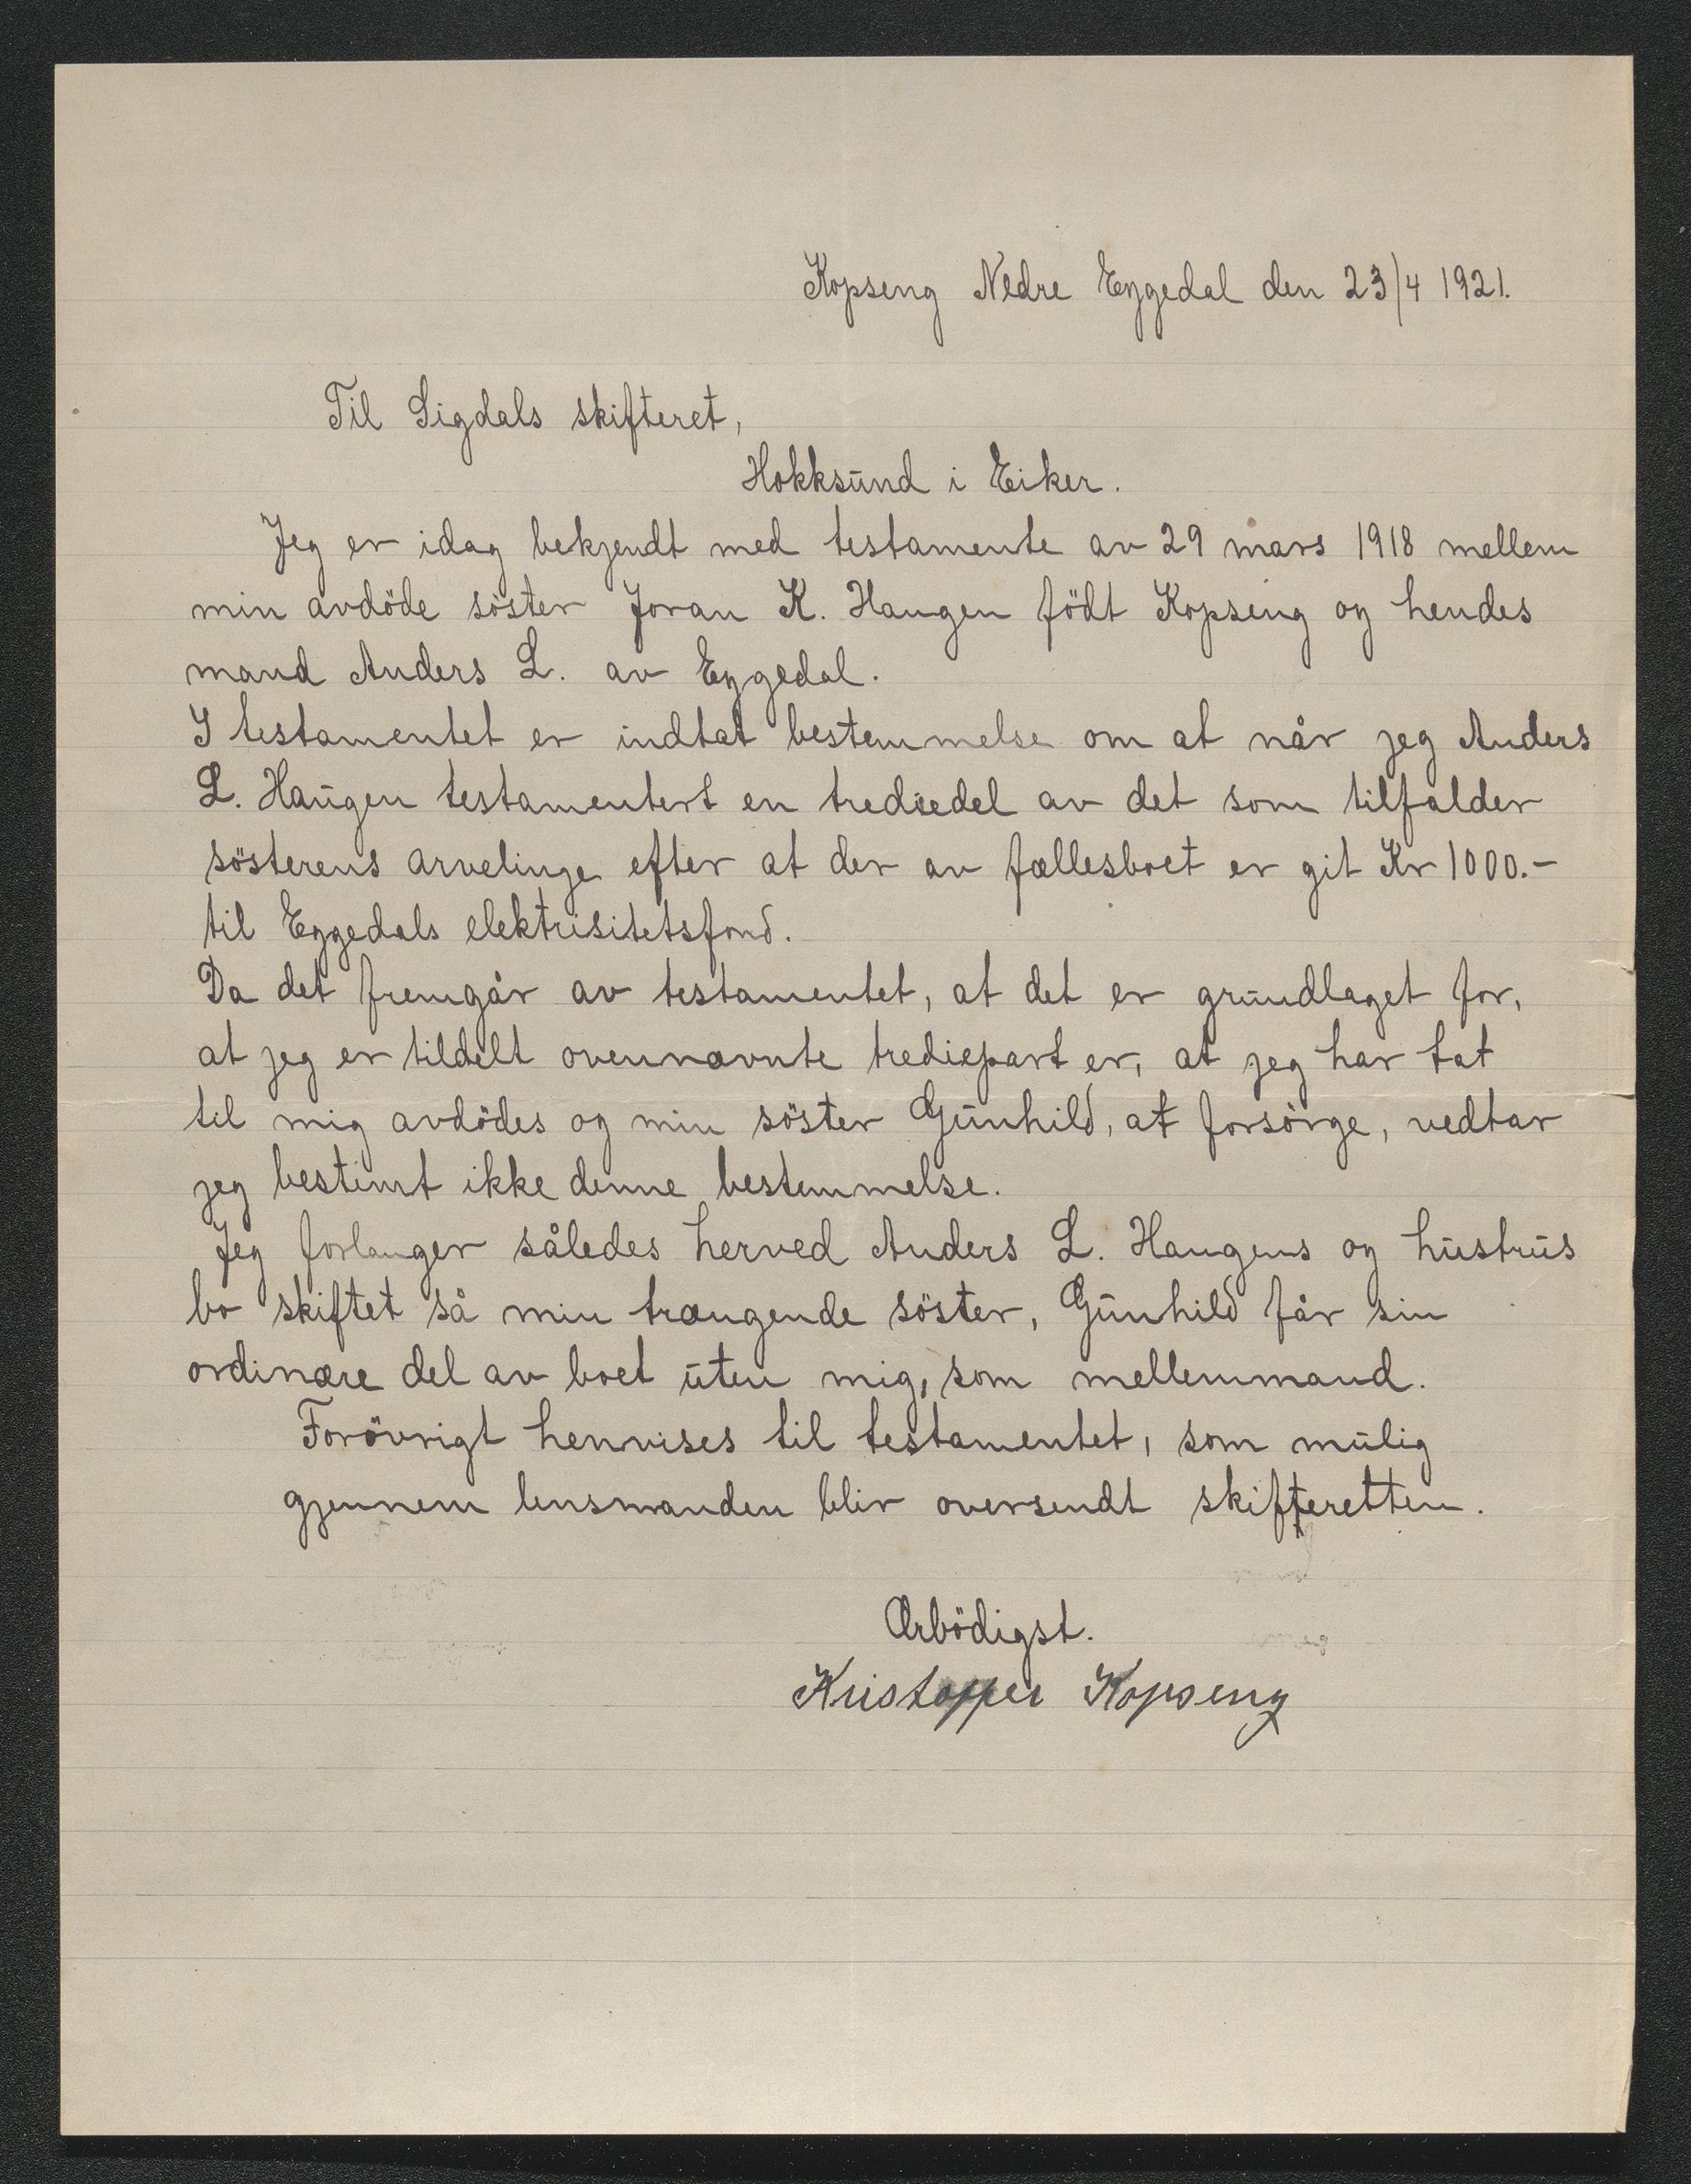 Kopseng Nedre Eggedal den 23/4 1921.
Til Sigdals skifteret,
Hokksund i Eiker.
Jeg er idag bekjendt med testamente av 29 mars 1918 mellem
min avdöde söster Joran K. Haugen födt Kopseng og hendes
mand Anders L. av Eggedal.
I testamentet er indtat bestemmelse om at når jeg Anders
L. Haugen testamentert en trediedel av det som tilfalder
sösterens arvelinge efter at der av fællesboet er git Kr 1000.-
til Eggedals elektrisitetsfond.
Da det fremgår av testamentet, at det er grundlaget for,
at jeg er tildelt ovennævnte trediepart er, at jeg har tat
til mig avdödes og min söster Gunhild, at forsörge, vedtar
jeg bestemt ikke denne bestemmelse.
Jeg forlanger således herved Anders L. Haugens og hustrus
bo skiftet så min trængende söster, Gunhild får sin
ordinære del av boet uten mig, som mellemmand.
Forövrigt henvises til testamentet, som mulig
gjennem lensmanden blir oversendt skifteretten.
Ærbödigst.
Kristoffer Kopseng